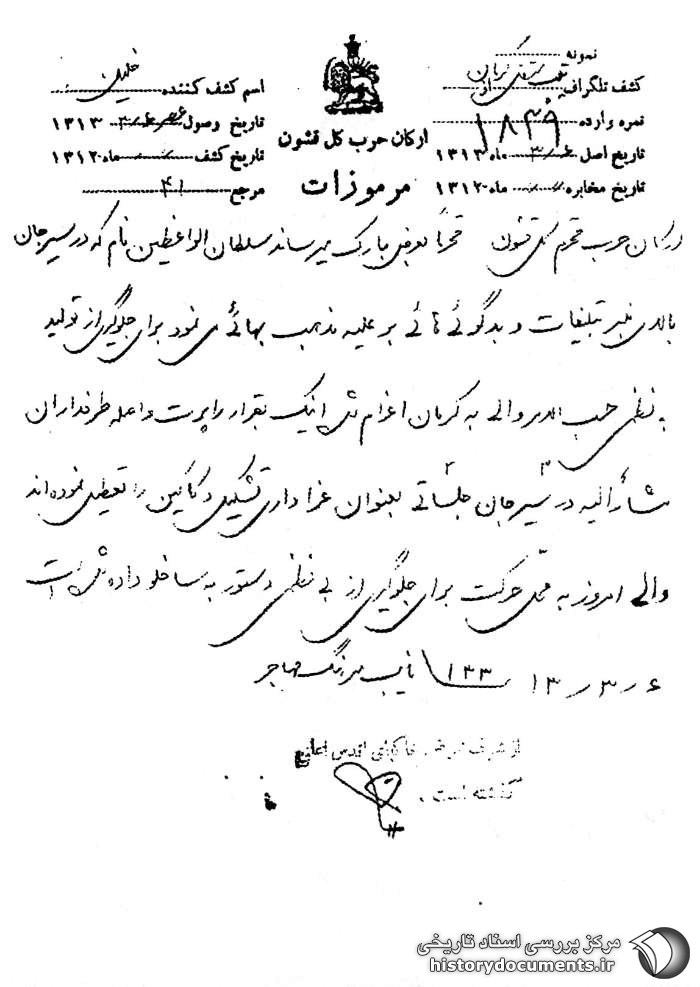 نمونه
کشف تلگراف از تیپ مستقل کرمان
نمره وارده ۱۸۳۹
تاریخ اصل ۶ر۳ ماه ۱۳۱۳
تاریخ مخابره ماه ۱۳۱۲
ارکان حرب کل قشون
مرموزات
اسم کشف کننده
تاریخ وصول ۱۳۱۳
تاریخ کشف ماه ۱۳۱۲
مرجع ۴۱
ارکان حرب محترم کل قشون محترماً بعرض مبارک میرساند سلطان الواعظین نام که در سیرجان
بالای منبر تبلیغات و بدگوئی هائی بر علیه مذهب بهائی می نمود برای جلوگیری از تولید
بی نظمی حسب الامر والی به کرمان اعزام شد اینک بقرار راپرت واصله طرفداران
مشارالیه در سیرجان جلساتی بعنوان عزاداری تشکیل دکاکین را تعطیل نموده اند
والی امروز به محل حرکت برای جلوگیری از بی نظمی دستور به ساخلو داده شده است
۶ر۳ر۱۳ ۱۳۳ نایب سرهنگ مهاجر
از شرف عرض خاکپای اقدس اعلی
گذشته است.
مرکز بررسی اسناد تاریخی
historydocuments.ir